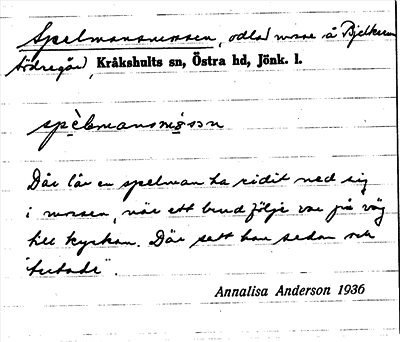 Spelmansmossen, odlad mosse å Bjelkerum
Södregård, Kråkshults sn, Östra hd, Jönk. l.
spèlmansmòsn
Där lär en spelman ha ridit ned sig
i mossen, när ett brudfölje var på väg
till kyrkan. Där satt han sedan och
"tutade".
Annalisa Anderson 1936